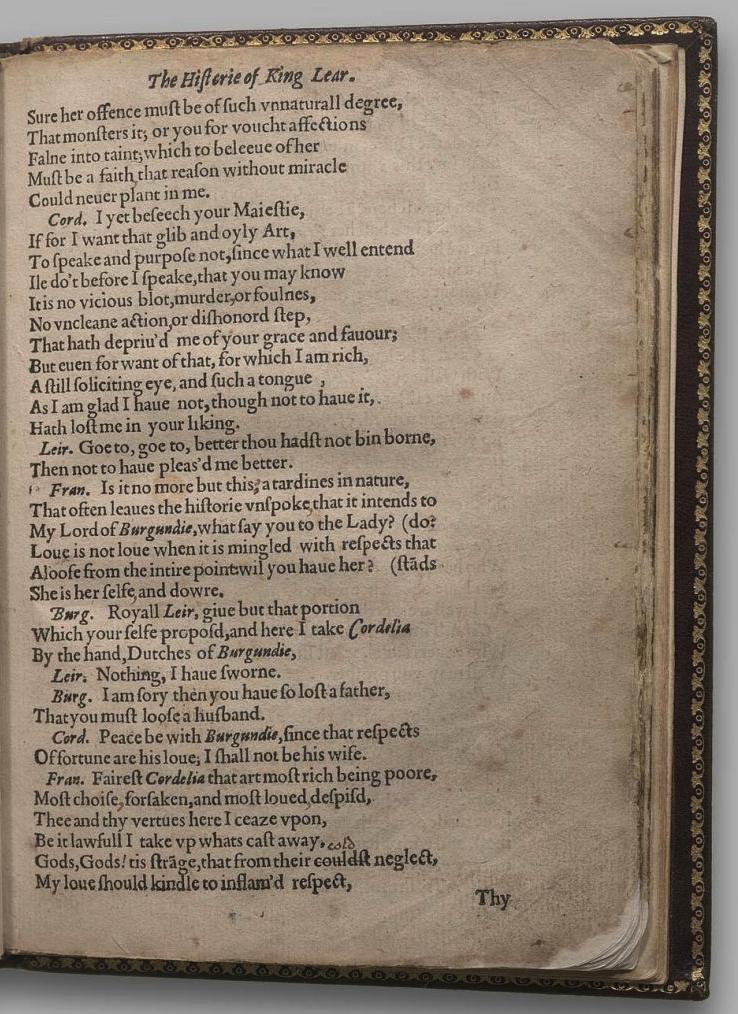 The Historie of King Lear.
Sure her offence must be of such vnnaturall degree,
That monsters it; or you for voucht affections
Falne into taint; which to beleeue of her
Must be a faith, that reason without miracle
Could neuer plant in me.
Cord. I yet beseech your Maiestie,
If for I want that glib and oyly Art,
To speake and purpose not, since what I well entend
Ile do't before I speake, that you may know
It is no vicious blot, murder, or foulnes,
No vncleane action, or dishonord step,
That hath depriu'd me of your grace and fauour;
But euen for want of that, for which I am rich,
A still soliciting eye, and such a tongue ,
As I am glad I haue not, though not to haue it,
Hath lost me in your liking.
Leir. Goe to, goe to, better thou hadst not bin borne,
Then not to haue pleas'd me better.
Fran. Is it no more but this; a tardines in nature,
That often leaues the historie vnspoke, that it intends to
My Lord of Burgundie, what say you to the Lady? (do?
Loue is not loue when it is mingled with respects that
Aloofe from the intire point wil you haue her? (stāds
She is her selfe, and dowre.
Burg. Royall Leir, giue but that portion
Which your selfe proposd, and here I take Cordelia
By the hand, Dutches of Burgundie,
Leir. Nothing, I haue sworne.
Burg. I am sory then you haue so lost a father,
That you must loose a husband.
Cord. Peace be with Burgundie, since that respects
Of fortune are his loue; I shall not be his wife.
Fran. Fairest Cordelia that art most rich being poore,
Most choise, forsaken, and most loued, despisd,
Thee and thy vertues here I ceaze vpon,
Be it lawfull I take vp whats cast away. cold
Gods, Gods! tis strāge, that from their couldst neglect,
My loue should kindle to inflam'd respect,
Thy